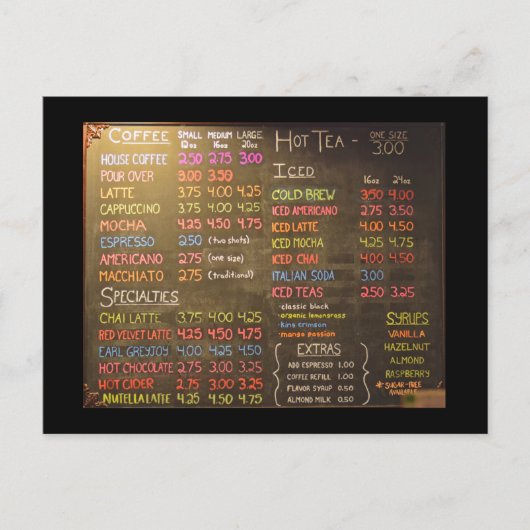 COFFEE SMALL 12oz MEDIUM 16oz LARGE 20oz
HOUSE COFFEE 2.50 2.75 3.00
POUR OVER 3.00 3.50
LATTE 3.75 4.00 4.25
CAPPUCCINO 3.75 4.00 4.25
MOCHA 4.25 4.50 4.75
ESPRESSO 2.50 (two shots)
AMERICANO 2.75 (one size)
MACCHIATO 2.75 (traditional)
SPECIALTIES
CHAI LATTE 3.75 4.00 4.25
RED VELVET LATTE 4.25 4.50 4.75
EARL GREYTOY 4.00 4.25 4.50
HOT CHOCOLATE 2.75 3.00 3.25
HOT CIDER 2.75 3.00 3.25
NUTELLA LATTE 4.25 4.50 4.75
HOT TEA - ONE SIZE 3.00
ICED
16oz 24oz
COLD BREW 3.50 4.00
ICED AMERICANO 2.75 3.50
ICED LATTE 4.00 4.50
ICED MOCHA 4.25 4.75
ICED CHAI 4.00 4.50
ITALIAN SODA 3.00
ICED TEAS 2.50 3.25
- classic black
- organic lemongrass
- king crimson
- mango passion
EXTRAS
ADD ESPRESSO 1.00
COFFEE REFILL 1.00
FLAVOR SYRUP 0.50
ALMOND MILK 0.50
SYRUPS
VANILLA
HAZELNUT
ALMOND
RASPBERRY
* SUGAR-FREE
AVAILABLE